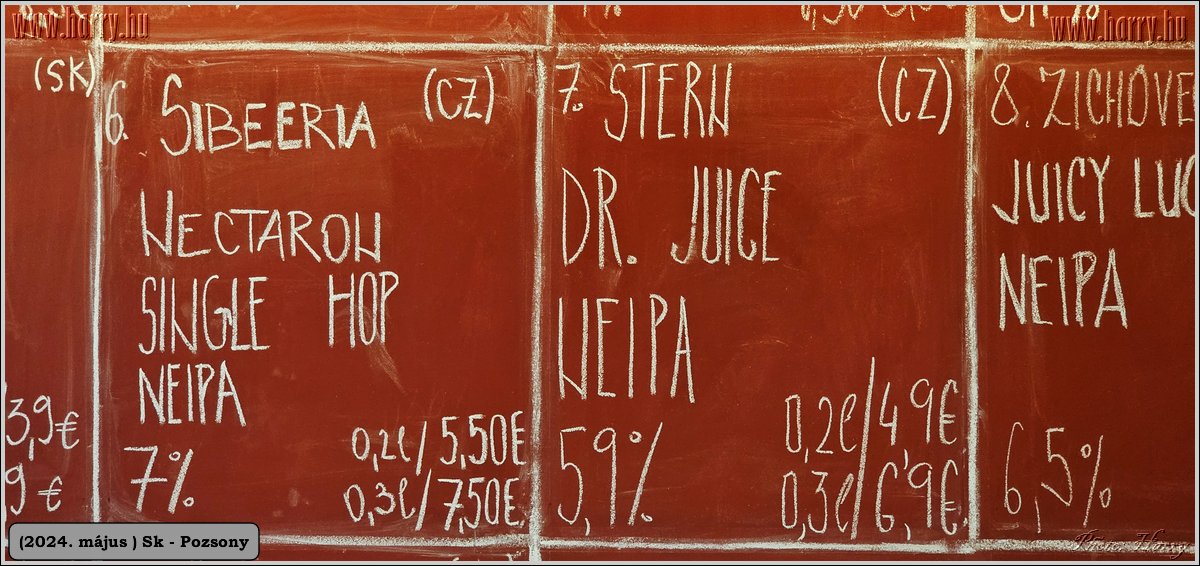 www.harry.hu
www.harry.hu
(SK)
3,9€
9 €
6. SIBEERIA (CZ)
NECTARON
SINGLE HOP
NEIPA
7%
0,2l/5,50€
0,3l/7,50€
7. ŠTERN (CZ)
DR. JUICE
NEIPA
5,9%
0,2l/4,9€
0,3l/6,9€
8. ZICHOVE
JUICY LUC
NEIPA
6,5%
(2024. május ) Sk - Pozsony